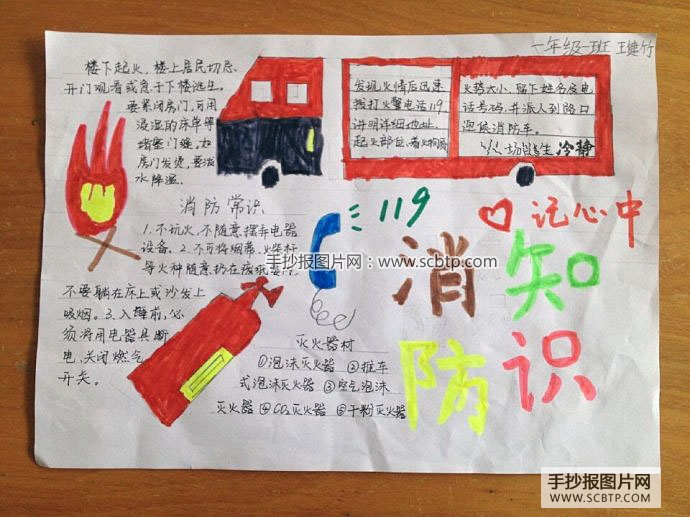 一年级一班 王建竹
楼下起火，楼上居民切忌
开门观看或急于下楼逃生。
要紧闭房门，可用
浸湿的床单等
堵塞门缝。如
房门发烫，要泼
水降温。
发现火情后迅速
拨打火警电话119
讲明详细地址、
起火部位、着火物质
火势大小、留下姓名及电
话号码，并派人到路口
迎候消防车。
火场逃生 冷静
消防常识
1.不玩火，不随意摆弄电器
设备。2.不可将烟蒂、火柴杆
等火种随意扔在废纸篓内
不要躺在床上或沙发上
吸烟。3.入睡前，必
须将用电器具断
电、关闭燃气
开关。
119
记心中
消
防
知
识
灭火器材
①泡沫灭火器 ②推车
式泡沫灭火器 ③空气泡沫
灭火器 ④CO₂灭火器 ⑤干粉灭火器
手抄报图片网：www.scbtp.com
手抄报图片网
WWW.SCBTP.COM